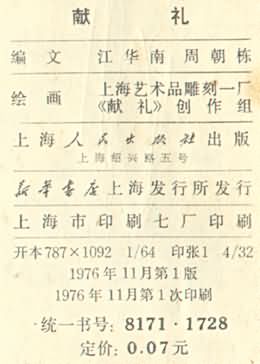 献 礼
编 文 江华南 周朝栋
绘 画 上海艺术品雕刻一厂
《献礼》创作组
上海人民出版社出版
上海绍兴路五号
新华书店上海发行所发行
上海市印刷七厂印刷
开本787×1092 1/64 印张1 4/32
1976年11月第1版
1976年11月第1次印刷
统一书号：8171·1728
定价：0.07元